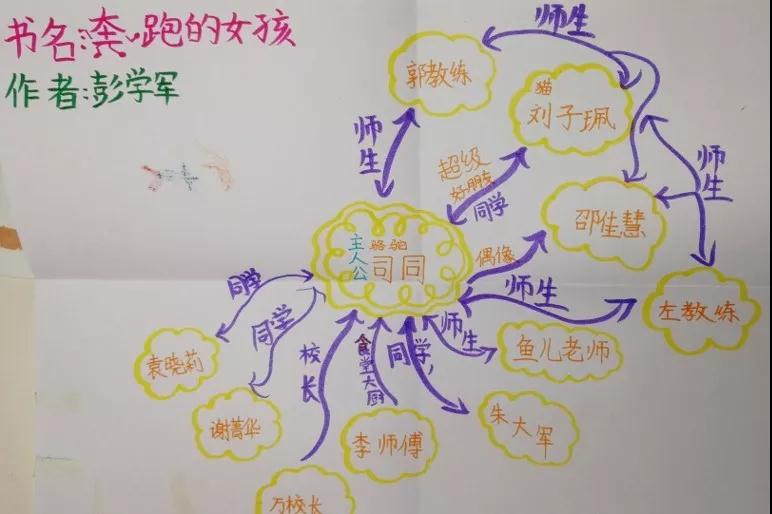 书名:奔跑的女孩
作者:彭学军
师生
郭教练
猫
刘子珮
师生
超级
好朋友
同学
师生
邵佳慧
主人公
骆驼
司同
偶像
师生
左教练
同学
同学
袁晓莉
谢菁华
校长
食堂大厨
同学,
师生
鱼儿老师
朱大军
李师傅
万校长